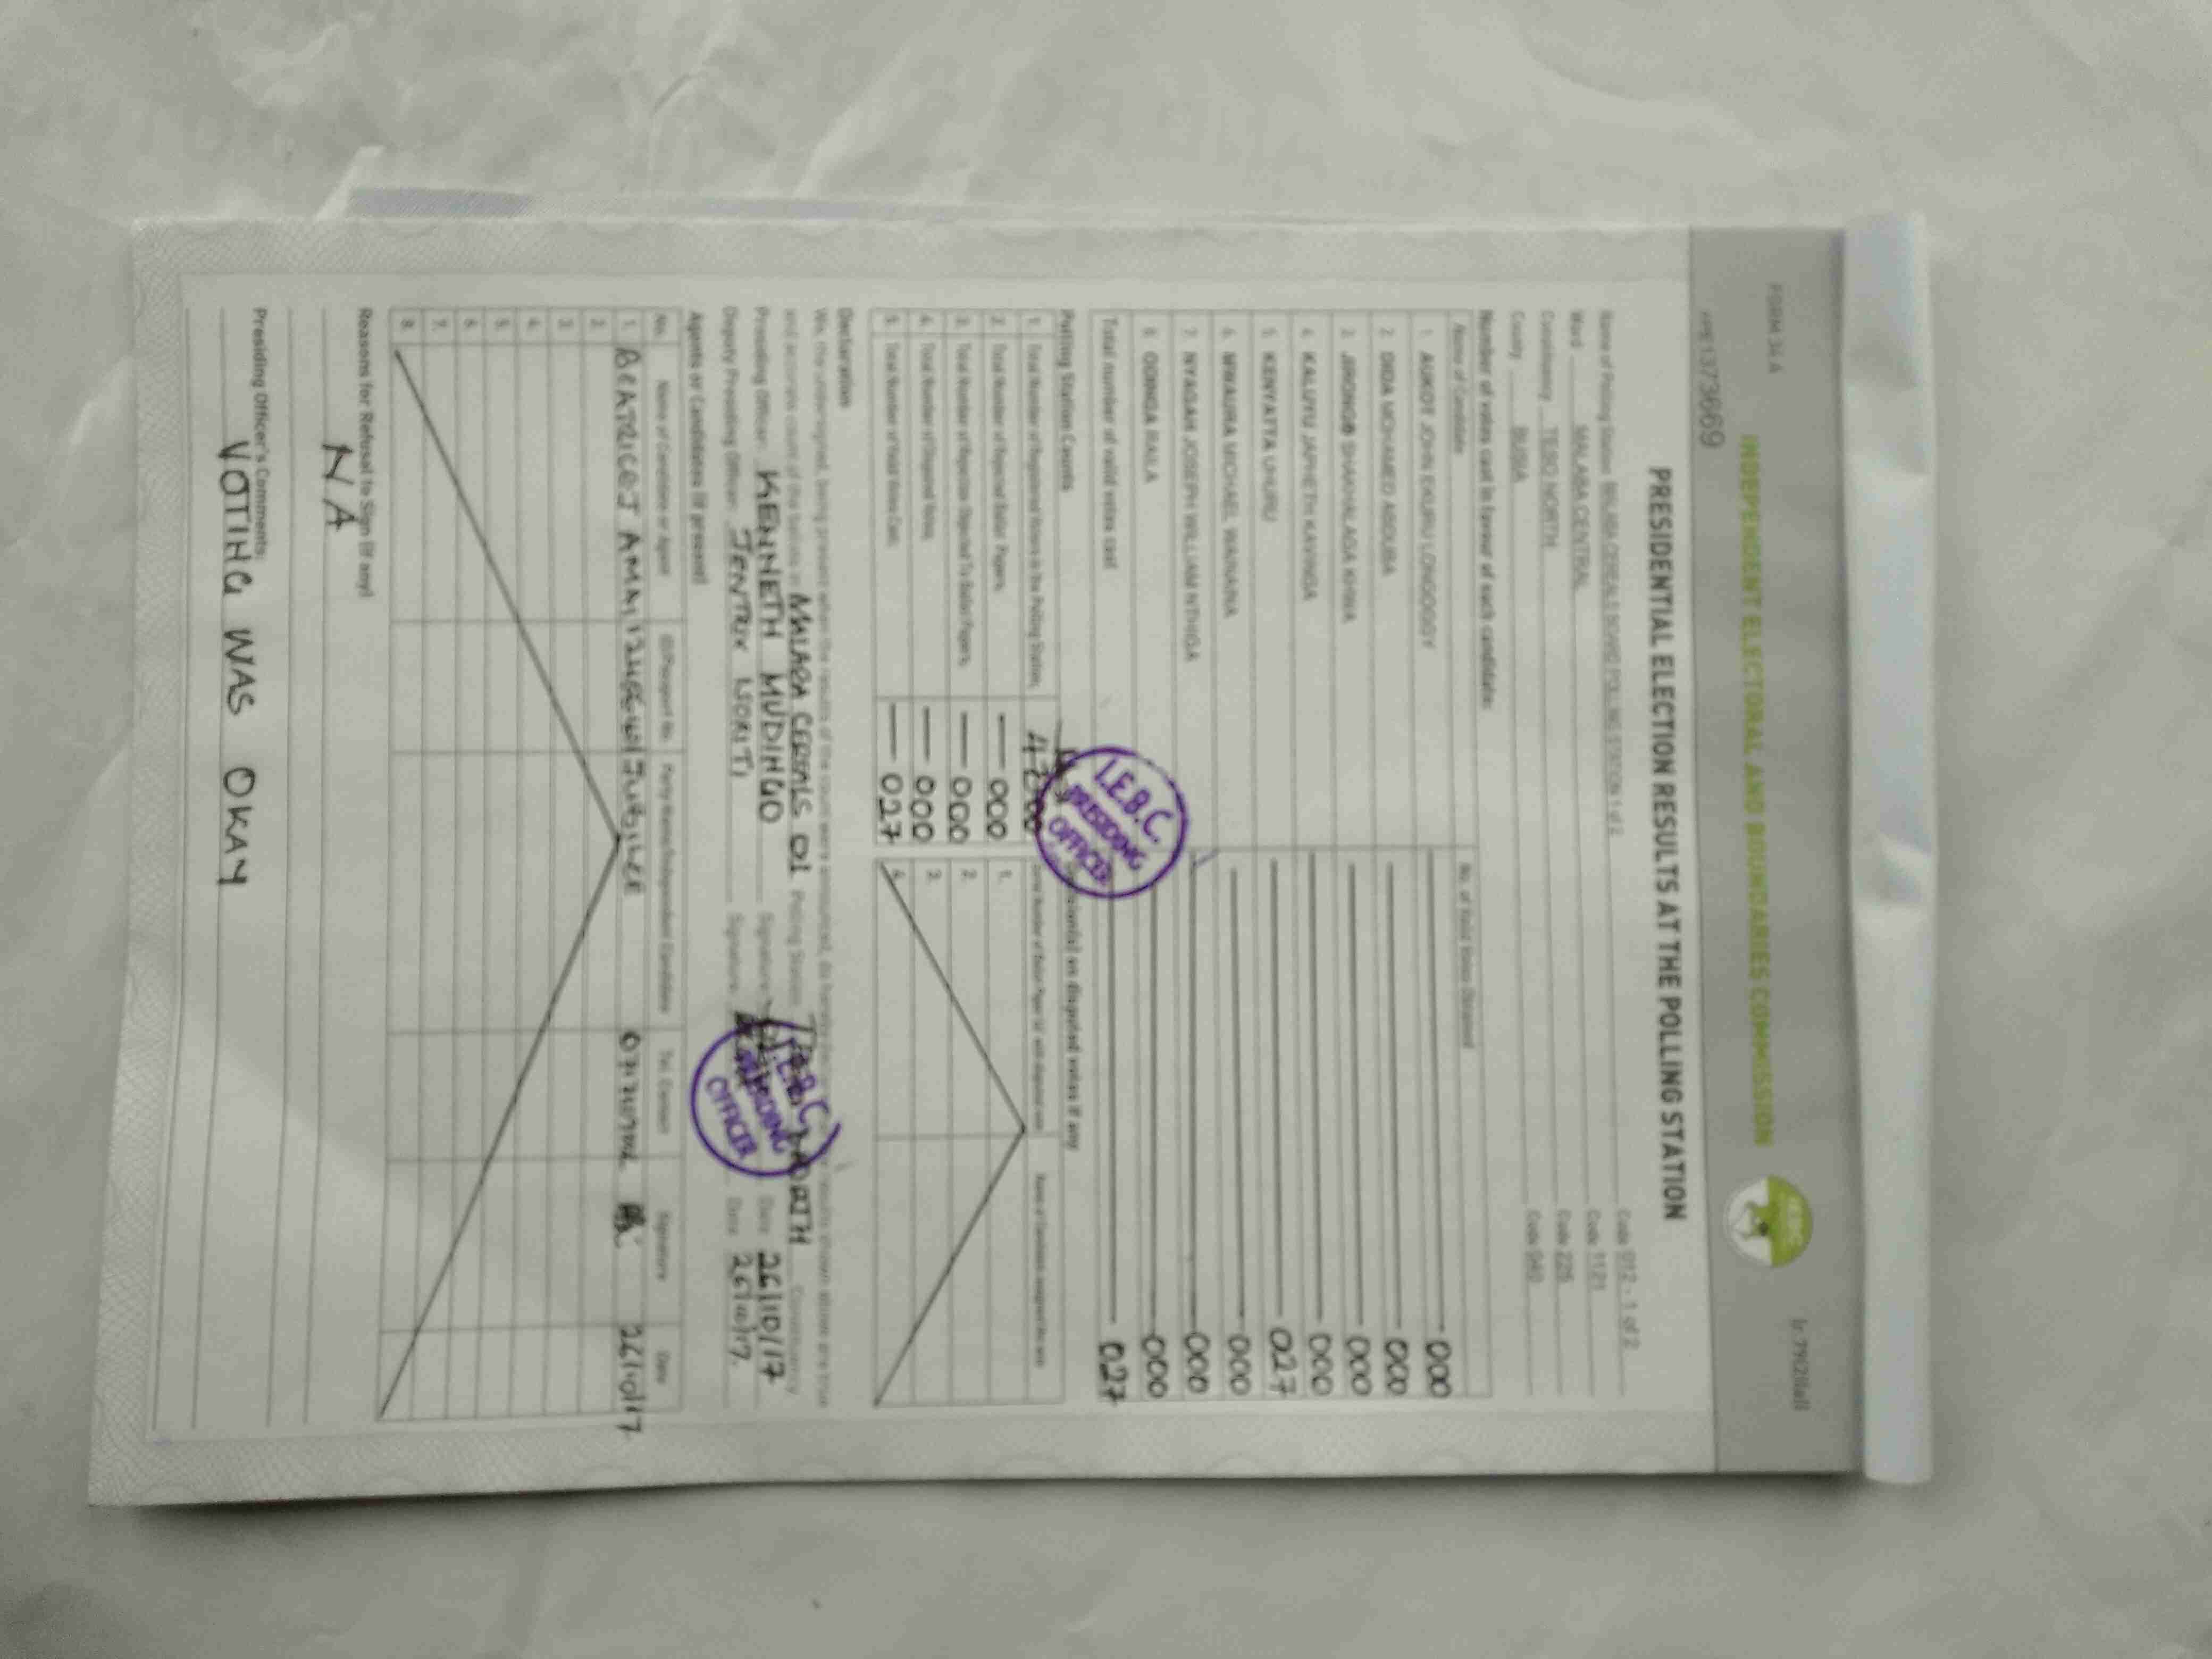 FORM 34A
INDEPENDENT ELECTORAL AND BOUNDARIES COMMISSION
IEBC
PRESIDENTIAL ELECTION RESULTS AT THE POLLING STATION
Name of Polling Station MALABA CEREALS BOARD POLLING STATION 1 of 2 Code 012 - 1 of 2
Ward MALABA CENTRAL Code 1121
Constituency TESO NORTH Code 226
County BUSIA Code 040
Number of votes cast in favour of each candidate:
Name of Candidate No. of Valid Votes Obtained
1. AUKOT JOHN EKURU LONGOGGY 000
2. DIDA MOHAMED ABDUBA 000
3. JIRONGO SHAKHALAGA KHWA 000
4. KALUYU JAPHETH KAVINGA 000
5. KENYATTA UHURU 027
6. MWAURA MICHAEL WAINAINA 000
7. NYAGAH JOSEPH WILLIAM NTHIGA 000
8. ODINGA RAILA 000
Total number of valid votes cast 027
I.E.B.C. PRESIDING OFFICER
Polling Station Counts
on disputed votes if any
1. Total Number of Registered Voters in the Polling Station
2. Total Number of Rejected Ballot Papers 000
3. Total Number of Rejection Objected To Ballot Papers 000
4. Total Number of Disputed Votes 000
5. Total Number of Valid Votes Cast 027
1.
2.
3.
4.
Declaration
We, the undersigned, being present when the results of the count were announced, do hereby results shown above are true
and accurate count of the ballots in MALABA CEREALS 01 Polling Station Constituency
Presiding Officer: KENNETH MUDINGO Signature Date 26/10/17
Deputy Presiding Officer: Signature Date 26/10/17
I.E.B.C. PRESIDING OFFICER
Agents or Candidates (if present)
No. Name of Candidate or Agent ID/Passport No. Party Name/Independent Candidate Tel. Contact Signature Date
1. JUBILEE 26/10/17
2.
3.
4.
5.
6.
7.
8.
Reasons for Refusal to Sign (if any)
N/A
Presiding Officer's Comments:
VOTING WAS OKAY